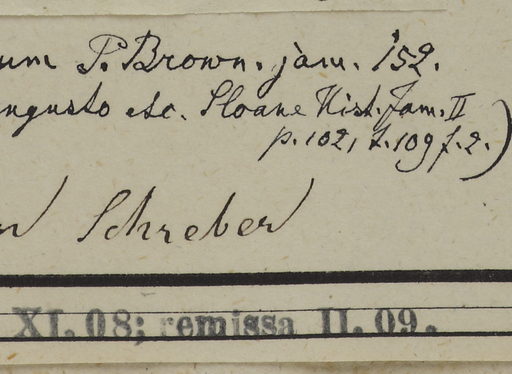 um P. Brown. jam. 152.
angusto etc. Sloane Hist. Jam. II
p. 102, t. 109 f. 2.)
Schreber
XI. 08; remissa II. 09.